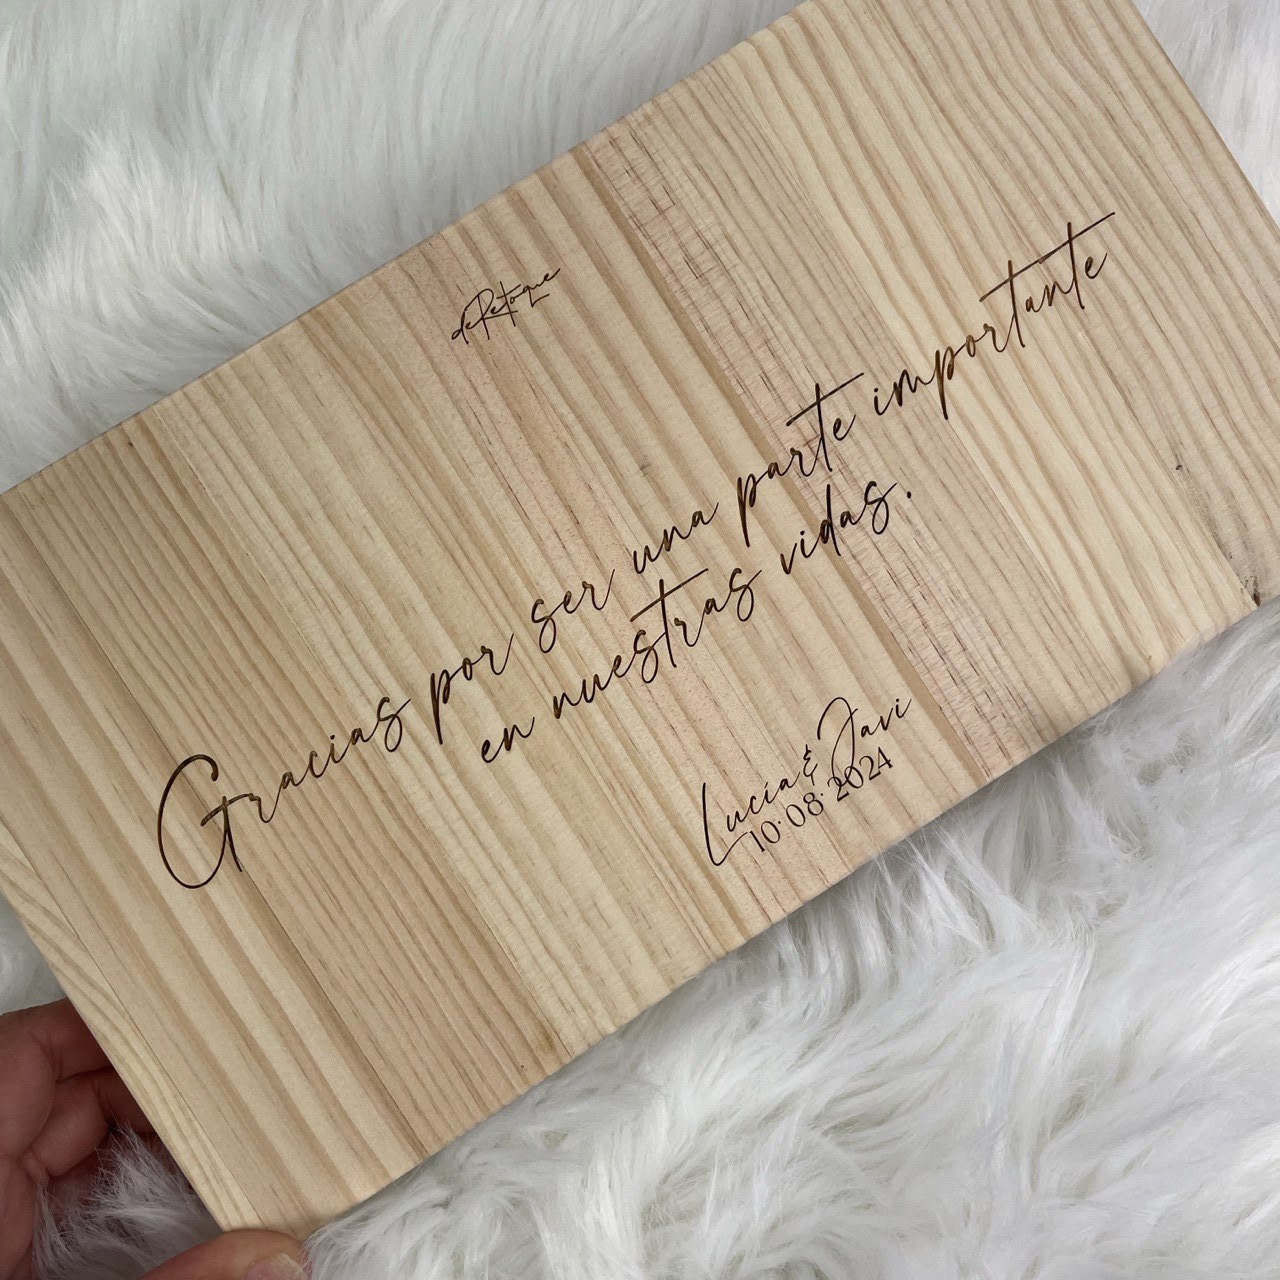 deRetoque
Gracias por ser una parte importante
en nuestras vidas.
Lucía & Javi
10·08·2024